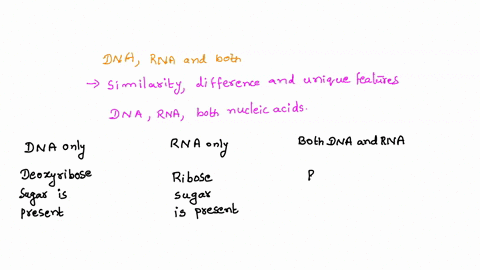 DNA, RNA and both
→ Similarity, difference and unique features
DNA, RNA, both nucleic acids.
DNA only
RNA only
Both DNA and RNA
Deoxyribose
Sugar is
present
Ribose
sugar
is present
P